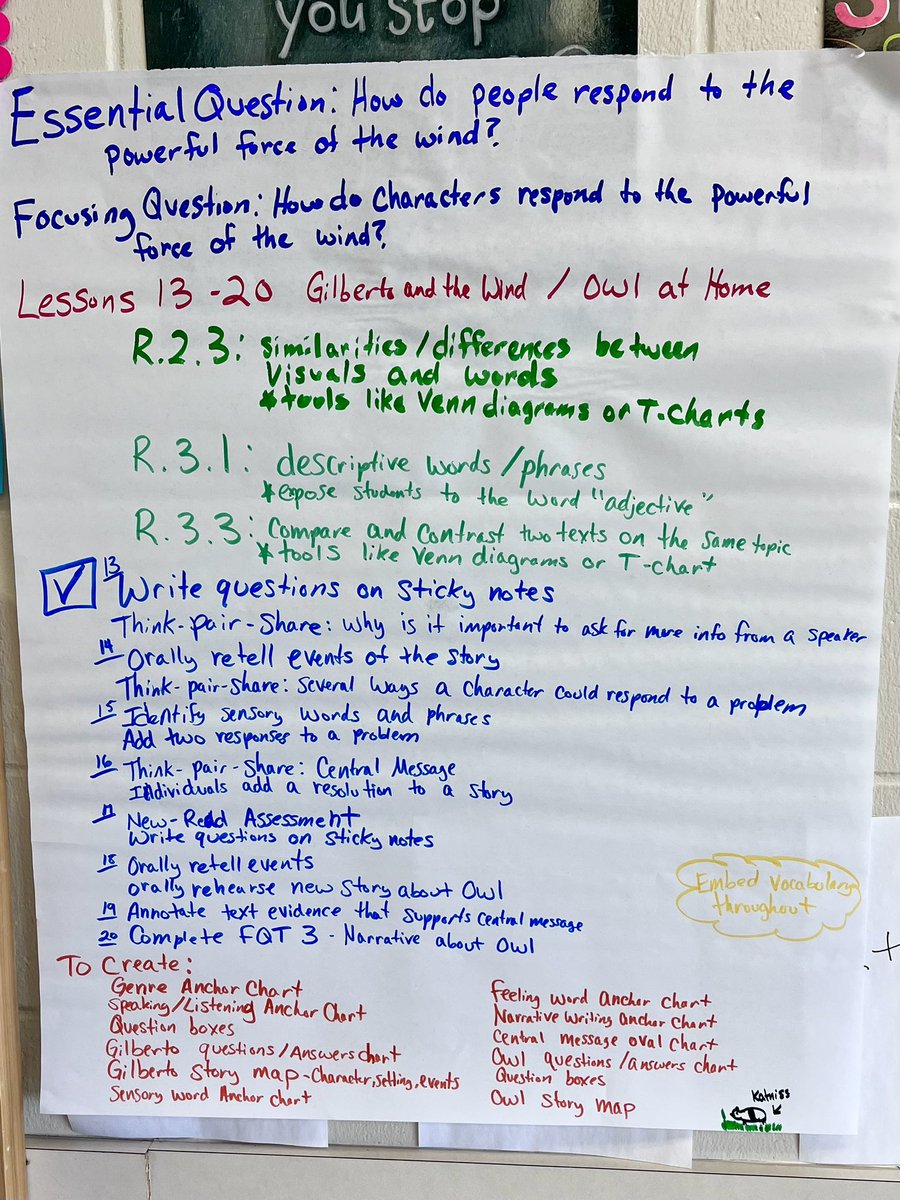 you stop
Essential Question: How do people respond to the
powerful force of the wind?
Focusing Question: How do characters respond to the powerful
force of the wind?
Lessons 13-20 Gilberto and the Wind / Owl at Home
R.2.3: Similarities/differences between
Visuals and words
*tools like Venn diagrams or T-charts
R.3.1: descriptive words/phrases
*expose students to the word "adjective"
R.3.3: Compare and contrast two texts on the same topic
*tools like Venn diagrams or T-chart
13 Write questions on sticky notes
Think-pair-share: Why is it important to ask for more info from a speaker
14 Orally retell events of the story
Think-pair-share: several ways a character could respond to a problem
15 Identify sensory words and phrases
Add two responses to a problem
16 Think-pair-share: Central Message
Individuals add a resolution to a story
17 New-Read Assessment
Write questions on sticky notes
18 Orally retell events
orally rehearse new story about Owl
19 Annotate text evidence that supports central message
20 Complete FQT 3 - Narrative about Owl
Embed Vocabulary
throughout
To Create:
Genre Anchor Chart
Speaking/Listening Anchor Chart
Question boxes
Gilberto questions/Answers chart
Gilberto Story map - character, setting, events
Sensory word Anchor chart
Feeling word anchor chart
Narrative writing anchor chart
Central message oval chart
Owl questions/answers chart
Question boxes
Owl Story map
Katniss